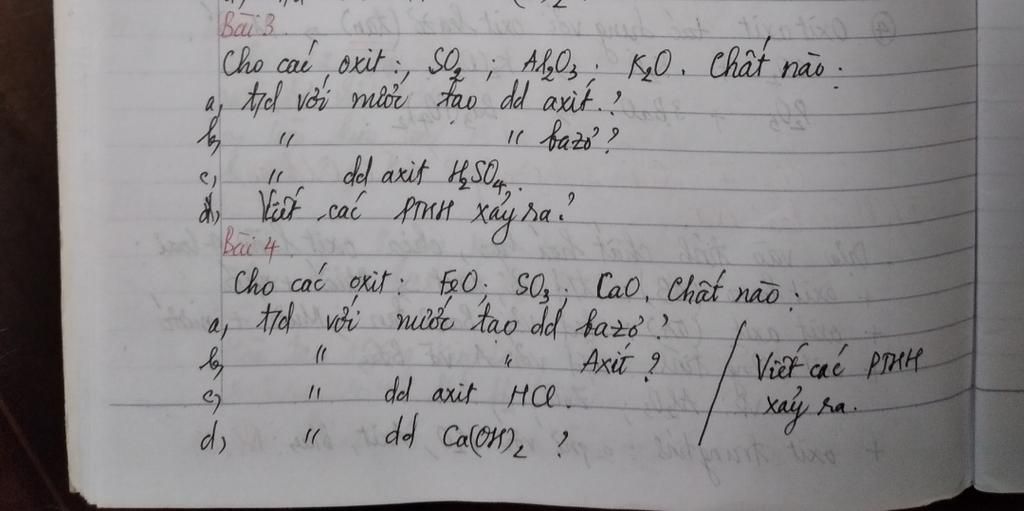 Bài 3
Cho các oxit:, SO2 ; Al2O3 ; K2O. Chất nào :
a, t/d với nước tạo dd axit.?
b, " " bazơ?
c, " dd axit H2SO4.
d, Viết các PTHH xảy ra?
Bài 4
Cho các oxit: FeO; SO3; CaO. Chất nào :
a, t/d với nước tạo dd bazơ?
b, " " Axit ? Viết các PTHH
c, " dd axit HCl. xảy ra.
d, " dd Ca(OH)2 ?